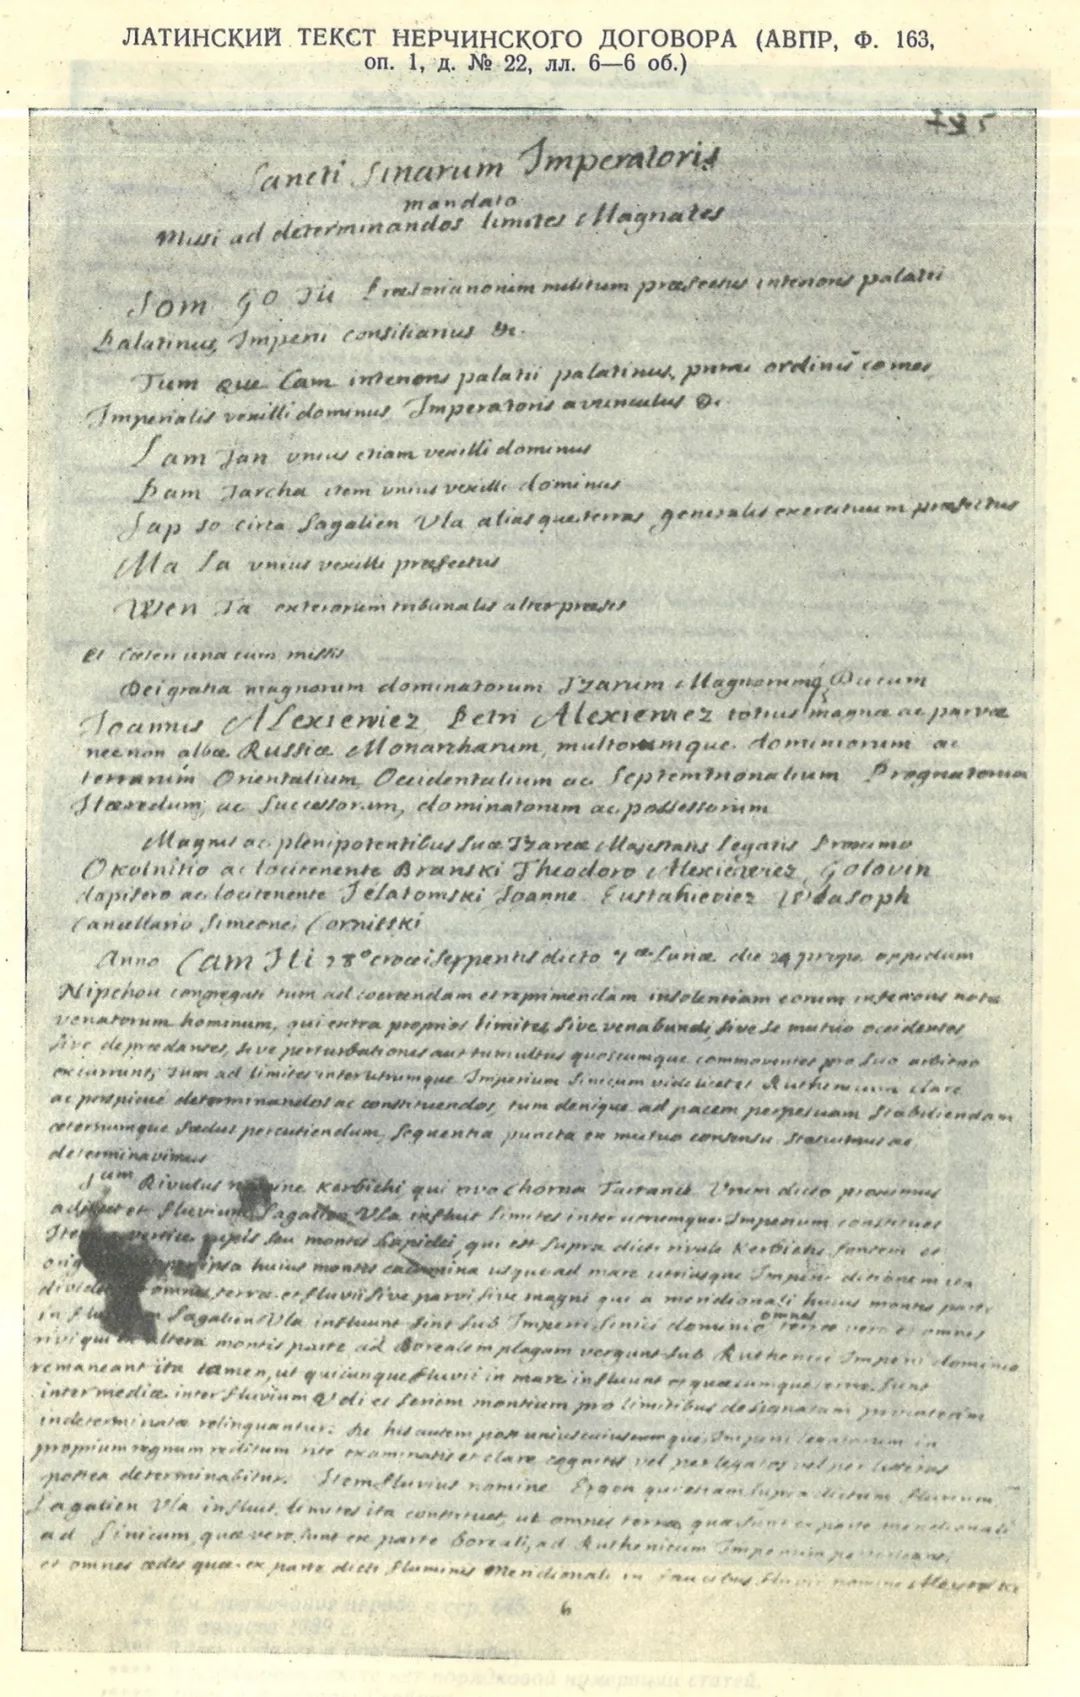 ЛАТИНСКИЙ ТЕКСТ НЕРЧИНСКОГО ДОГОВОРА (АВПР, Ф. 163,
оп. 1, д. № 22, лл. 6—6 об.)
Sancti Sinarum Imperatoris
mandato
Missi ad determinandos limites Magnates
Som Go Tu Praetorianorum militum praefectus interioris palatii
Palatinus, Imperii consiliarius &c.
Tum que Cam interioris palatii palatinus, primi ordinis comes
Imperialis vexilli dominus Imperatoris avunculus &c.
Lam Tan unius etiam vexilli dominus
Pam Tarcha item unius vexilli dominus
Sap so circa Sagalien Ula aliasque terras generalis exercituum praefectus
Ma La unius vexilli praefectus
Wen Ta exteriorum tribunalis alter praeses
et caeteri una cum missis
Dei gratia magnorum dominatorum Tzarum Magnorumq. Ducum
Joannis Alexiewiez Petri Alexiewiez totius magnae ac parvae
nec non albae Russiae Monarcharum, multorumque dominiorum ac
terrarum Orientalium, Occidentalium ac Septemtrionalium Prognatorum
Haeredum, ac Successorum, dominatorum ac possessorum
Magnis ac plenipotentibus Suae Tzareae Majestatis legatis Proximo
Okolnitio ac locitenente Branski Theodoro Alexiewiez Golovin
dapifero ac locitenente Jelatomski Joanne Eustahieviez Wlasoph
Cancellario Simeone Cornitski
Anno Cam Hi 28º crocei Serpentis dicto 7ae Lunae die 24 prope oppidum
Nipchou congregati tum ad coercendam et reprimendam insolentiam eorum inferioris notae
venatorum hominum, qui extra proprios limites, sive venabundi, sive se mutuo occidentes,
sive depraedantes, sive perturbationes aut tumultus quoscumque commoventes pro suo arbitrio
excurrunt, tum ad limites inter utrumque Imperium Sinicum videlicet et Ruthenicum clare
ac perspicue determinandos ac constituendos, tum denique ad pacem perpetuam stabiliendam
aeternumque foedus percutiendum, sequentia puncta ex mutuo consensu statuimus ac
determinavimus
1um Rivulus nomine Kerbichi qui rivo Chorna Tartarice Urum dicto proximus
et fluvium Sagalien Ula influit limites inter utrumque Imperium constituet
vertice rupis seu montis lapidei, qui est supra dicti rivuli Kerbichi fontem et
ipsa huius montis cacumina usque ad mare utriusque Imperii ditionem ita
omnes terrae et fluvii sive parvi sive magni qui a meridionali huius montis parte
in Sagalien Ula influunt sint sub Imperii Sinici dominio omnes terrae vero et omnes
rivi qui ex altera montis parte ad Borealem plagam vergunt sub Ruthenici Imperii dominio
remaneant ita tamen, ut quicunque fluvii in mare influunt et quaecumque terrae sunt
intermediae inter fluvium Udi et seriem montium pro limitibus designatam
indeterminatae relinquantur. De his autem post uniuscuiuscumque Imperii legatorum in
proprium regnum reditum rite examinatis et clare cognitis vel per legatos vel per litteras
postea determinabitur. Item fluvius nomine Ergon qui etiam supra dictum fluvium
Sagalien Ula influit, limites ita constituet, ut omnes terrae quae sunt ex parte meridionali
ad Sinicum, quae vero sunt ex parte boreali, ad Ruthenicum Imperium
et omnes aedes quae ex parte dicti fluminis Meridionali in faucibus fluvii nomine
6